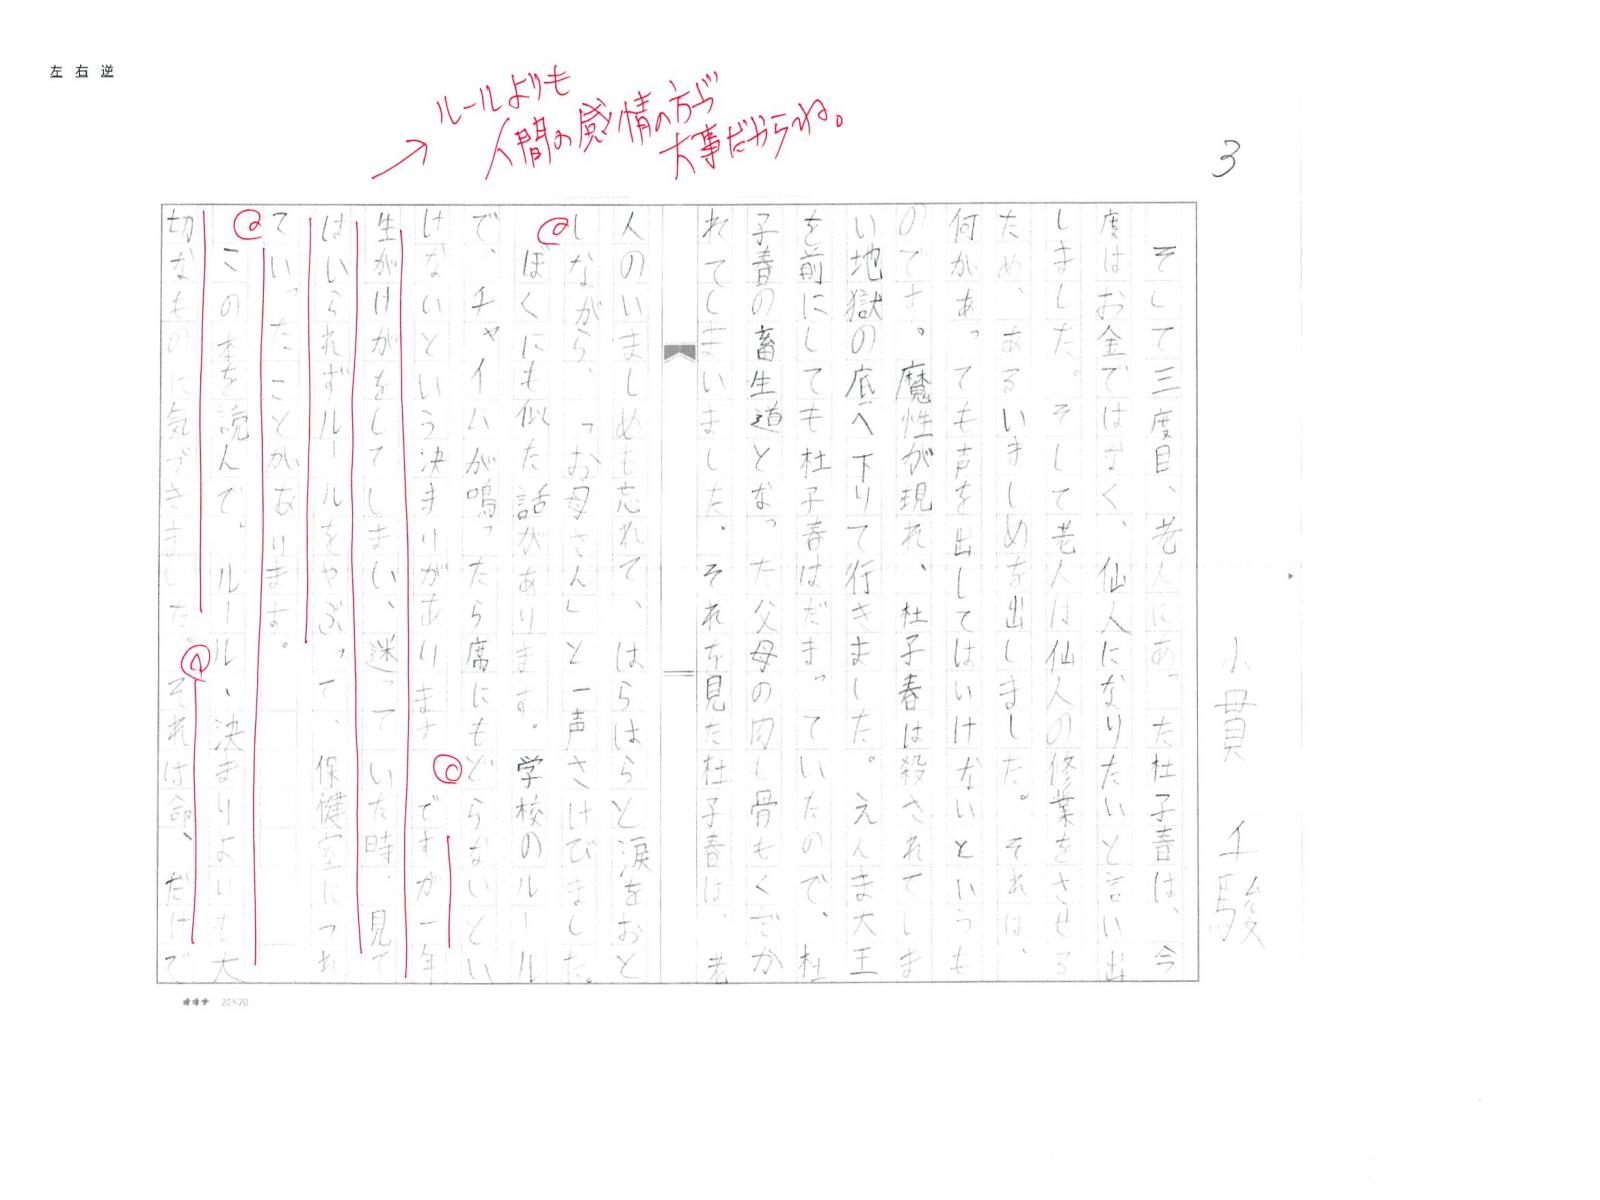 左右逆
ルールよりも
人間の感情の方が
大事だからね。
3
小貫 千駿
そして三度目、老人にあった杜子春は、今
度はお金ではなく、仙人になりたいと言い出
しました。そして老人は仙人の修業をさせる
ため、あるいましめを出しました。それは、
何があっても声を出してはいけないというも
のです。魔性が現れ、杜子春は殺されてしま
い地獄の底へ下りて行きました。えんま大王
を前にしても杜子春はだまっていたので、杜
子春の畜生道となった父母の肉も骨もくだか
れてしまいました。それを見た杜子春は、老
人のいましめも忘れて、はらはらと涙をおと
しながら、「お母さん」と一声さけびました。
ぼくにも似た話があります。学校のルール
で、チャイムが鳴ったら席にもどらないとい
けないという決まりがありますですが一年
生がけがをしてしまい、迷っていた時、見て
はいられずルールをやぶって、保健室につれ
ていったことがあります。
この本を読んで、ルール、決まりよいも大
切なものに気づきました。それは命、だけで
オキナ 20×20